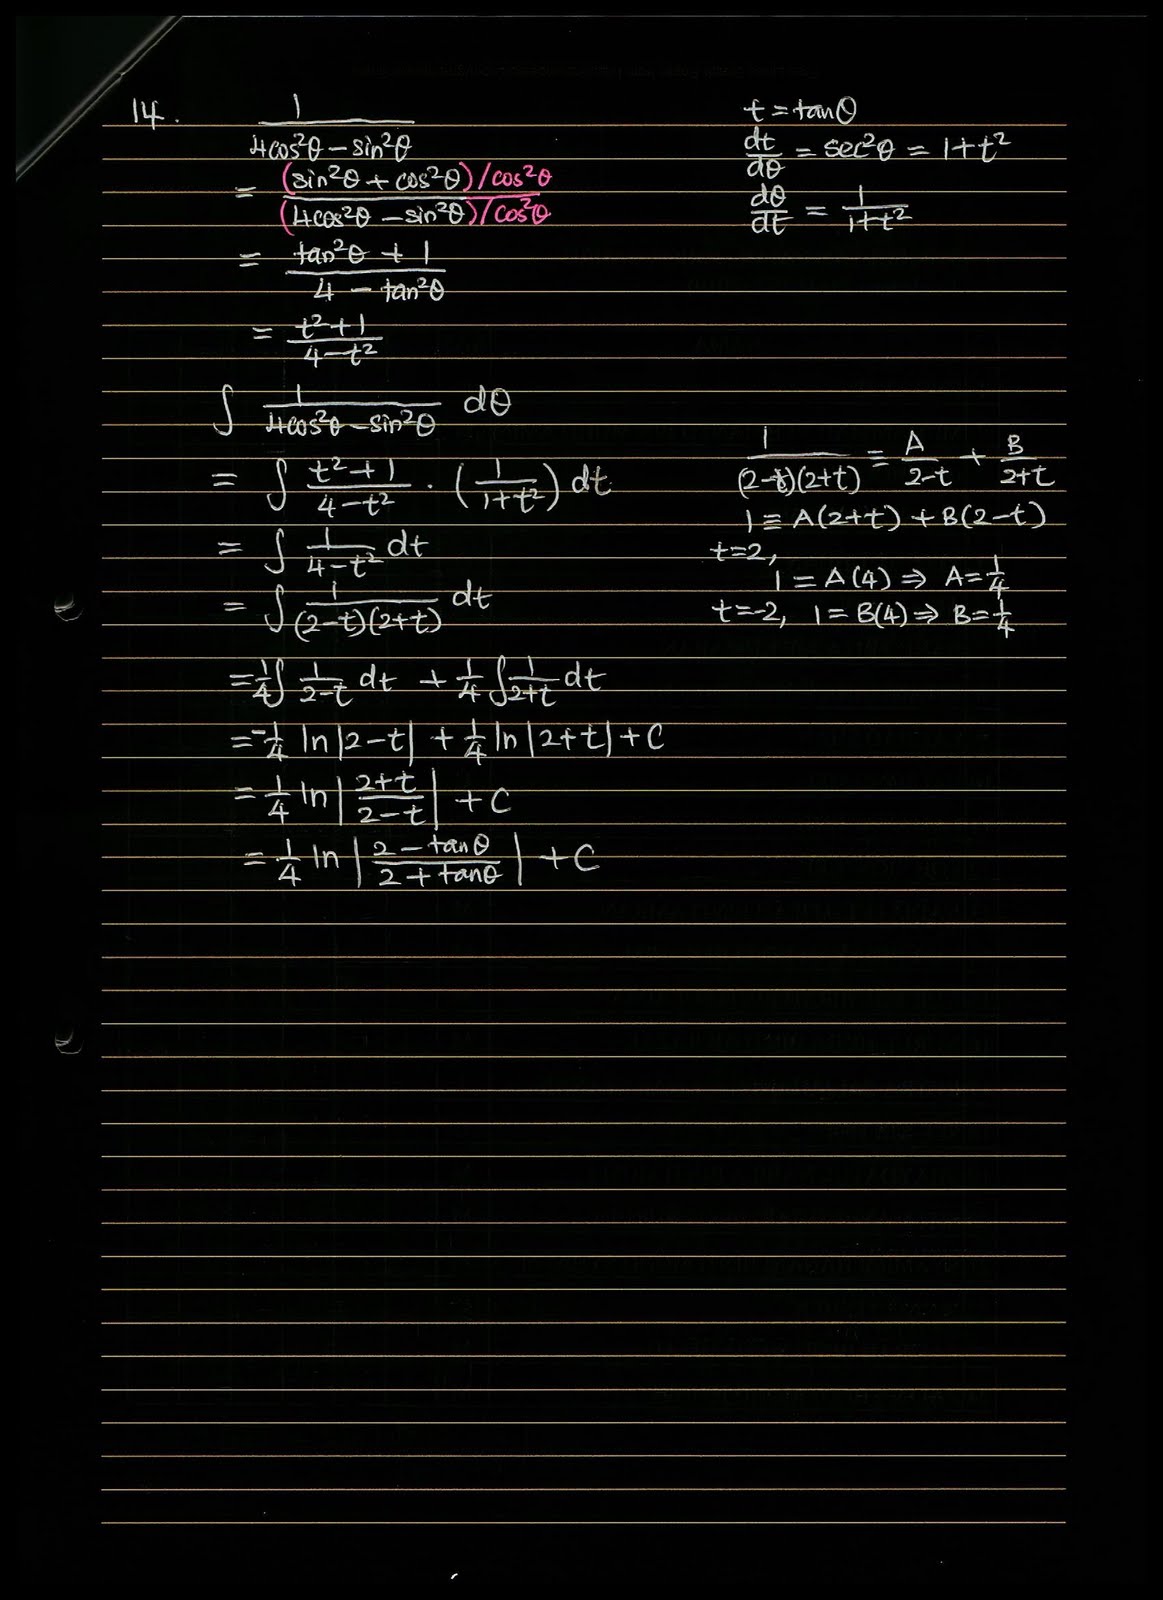 14. 1/(4cos²θ − sin²θ)
= (sin²θ + cos²θ)/cos²θ / (4cos²θ − sin²θ)/cos²θ
= (tan²θ + 1)/(4 − tan²θ)
= (t²+1)/(4−t²)
t = tanθ
dt/dθ = sec²θ = 1+t²
dθ/dt = 1/(1+t²)
∫ 1/(4cos²θ − sin²θ) dθ
= ∫ (t²+1)/(4−t²) · (1/(1+t²)) dt
= ∫ 1/(4−t²) dt
= ∫ 1/((2−t)(2+t)) dt
= 1/4 ∫ 1/(2−t) dt + 1/4 ∫ 1/(2+t) dt
= −1/4 ln|2−t| + 1/4 ln|2+t| + C
= 1/4 ln|(2+t)/(2−t)| + C
= 1/4 ln|(2−tanθ)/(2+tanθ)| + C
1/((2−t)(2+t)) ≡ A/(2−t) + B/(2+t)
1 ≡ A(2+t) + B(2−t)
t=2,
1 = A(4) ⇒ A=1/4
t=-2, 1 = B(4) ⇒ B=1/4